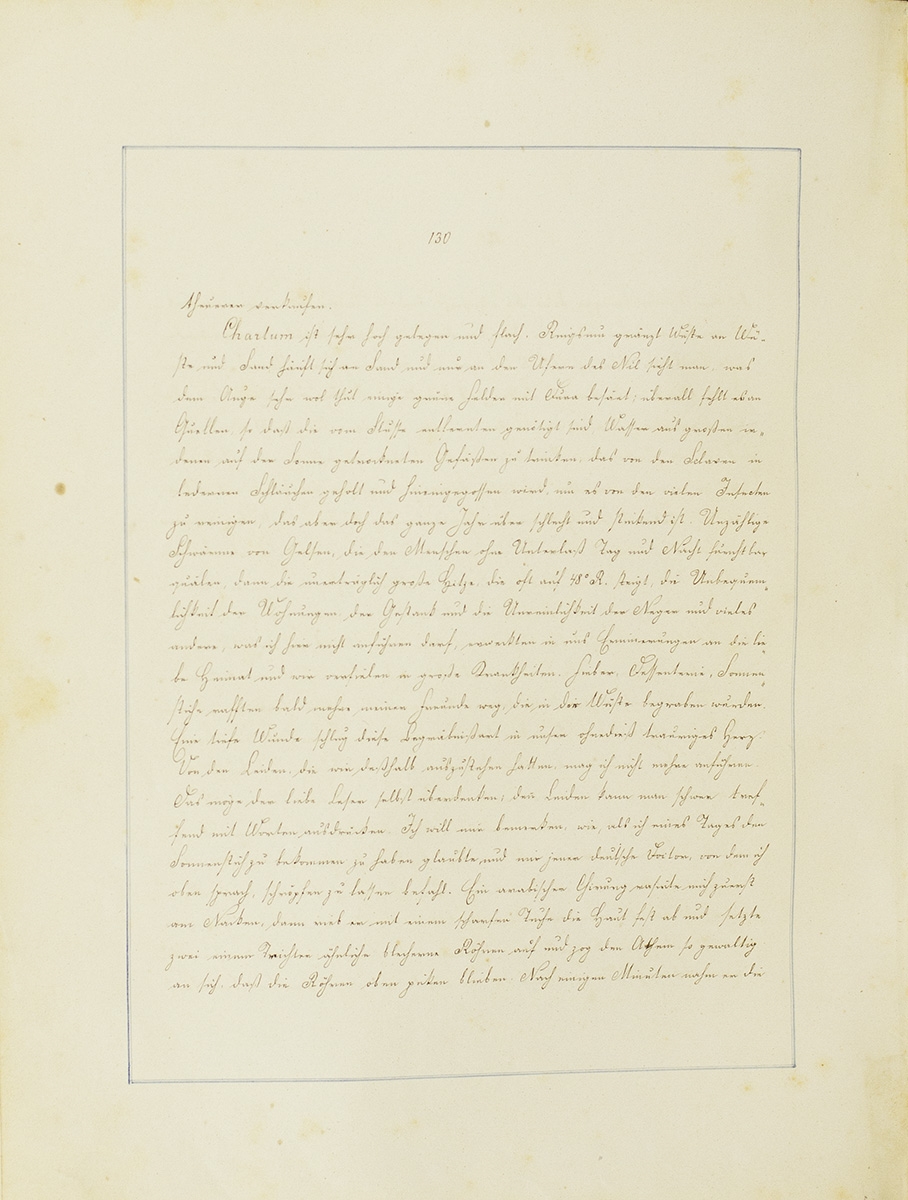 130
theuerer verkaufen.
Chartum ist sehr hoch gelegen und flach. Ringsum gränzt Wüste an Wü-
ste und Sand häuft sich an Sand und nur an den Ufern des Nil sieht man, was
dem Auge sehr wol thut einige grüne Felder mit Dura besäet; überall fehlt es an
Quellen, so daß die vom Fluße entfernten genötigt sind Wasser aus großen ir-
denen auf der Sonne getrockneten Gefäßen zu trinken, das von den Sclaven in
ledernen Schläuchen geholt und hineingegossen wird, um es von den vielen Insecten
zu reinigen, das aber doch das ganze Jahr über schlecht und stinkend ist. Unzählige
Schwärme von Gelsen, die den Menschen ohne Unterlaß Tag und Nacht furchtbar
quälen, dann die unerträglich große Hitze, die oft auf 48° R. steigt, die Unbequem-
lichkeit der Wohnungen, der Gestank und die Unreinlichkeit der Neger und vieles
andere, was ich hier nicht anführen darf, erweckten in uns Erinnerungen an die lie-
be Heimat und wir verfielen in große Krankheiten. Fieber, Dessenterie, Sonnen-
stiche rafften bald mehre meiner Freunde weg, die in der Wüste begraben wurden.
Eine tiefe Wunde schlug diese Begräbnißart in unser ohnedieß trauriges Herz.
Von den Leiden, die wir deßhalb auszustehen hatten, mag ich nicht mehr anführen.
Das möge der liebe Leser selbst überdenken; die Leiden kann man schwer tref-
fend mit Worten ausdrücken. Ich will nur bemerken, wie, als ich eines Tages den
Sonnenstich zu bekommen zu haben glaubte, und mir jener deutsche Doctor, von dem ich
oben sprach, schröpfen zu lassen befahl. Ein arabischer Chirurg rasirte mich zuerst
am Nacken, dann rieb er mit einem scharfen Tuche die Haut fest ab und setzte
zwei einem Trichter ähnliche blecherne Röhren auf und zog den Athem so gewaltig
an sich, daß die Röhren oben picken blieben. Nach einigen Minuten nahm er die